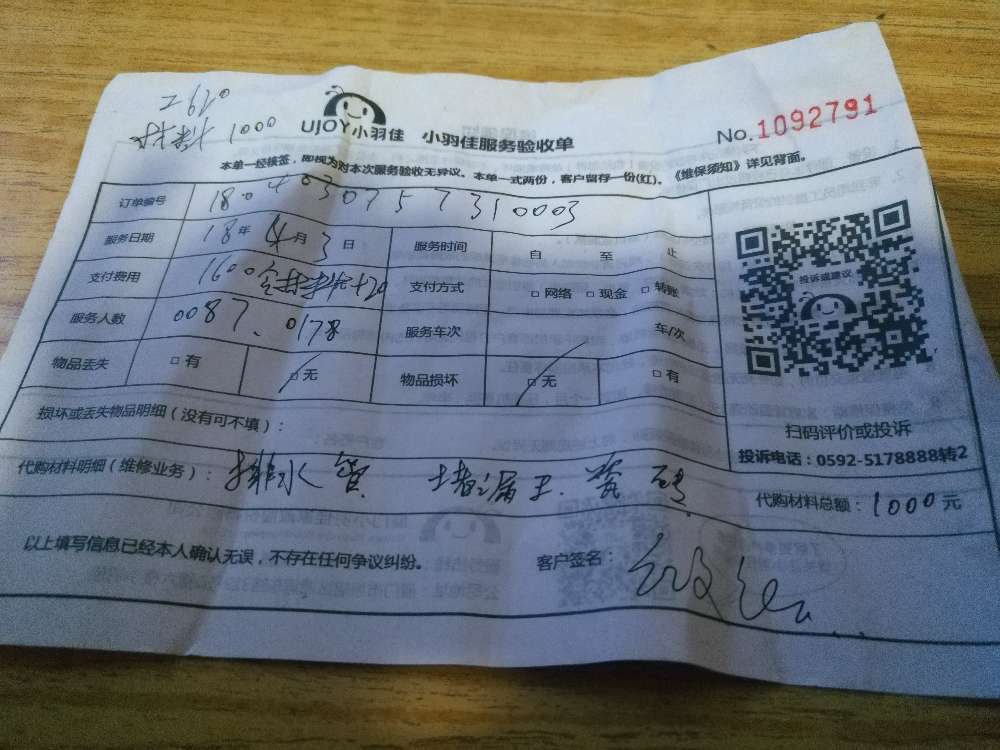 2620
材料 1000
UJOY小羽佳 小羽佳服务验收单
No.1092791
本单一经核签,即视为对本次服务验收无异议。本单一式两份,客户留存一份(红)。《维保须知》详见背面。
订单编号 1804030757310003
服务日期 18年4月3日 服务时间 自 至 止
支付费用 1600含材料 +20 支付方式 □网络 □现金 □转账
服务人数 0087、0178 服务车次 车/次
物品丢失 □有 □无 物品损坏 □无 □有
损坏或丢失物品明细(没有可不填):
投诉或建议
扫码评价或投诉
投诉电话:0592-5178888转2
代购材料明细(维修业务):排水管 堵漏王.瓷砖
代购材料总额:1000元
以上填写信息已经本人确认无误,不存在任何争议纠纷。
客户签名: